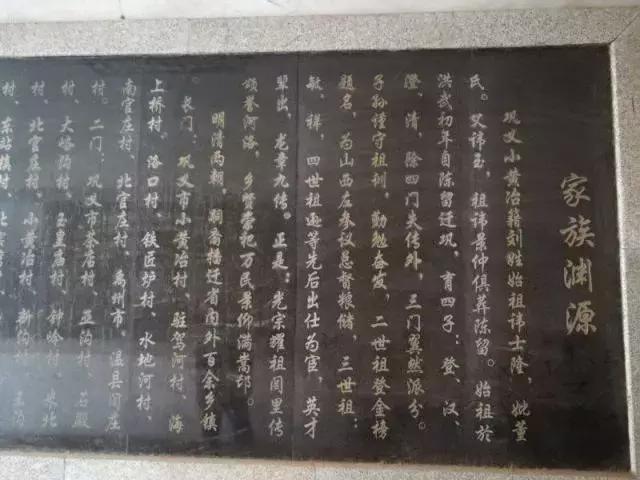 家族渊源
巩义小黄冶籍刘姓始祖讳士隆，妣董
氏。父讳玉，祖讳景仲俱葬陈留。始祖於
洪武初年自陈留迁巩，育四子：登、汉、
澄、清，除四门失传外，三门冀然派分。
子孙谨守祖训，勤勉奋发，二世祖登金榜
题名，为山西左参议总督粮储，三世祖：
敏、祥，四世祖逊等先后出仕为官，英才
辈出，龙章九传。正是：光宗耀祖闾里传
颂誉河洛，乡贤崇祀万民景仰满嵩邙。
明清两朝，嗣裔播迁者内外百余乡镇
。长门：巩义市小黄冶村、驻驾河村、海
上桥村、洛口村、铁匠炉村、水地河村、
南官庄村、北官庄村、禹州市、温县闫庄
村。二门：巩义市茶店村、益沟村、芝殿
村、大峪沟村、玉皇庙村、钟岭村、
村、北官庄村、小黄冶村、
村、东站镇村、